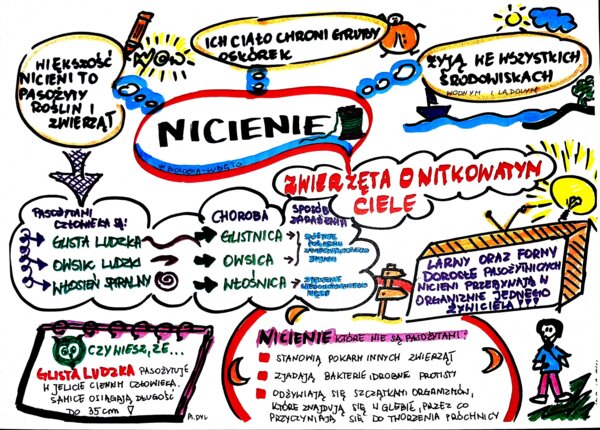 WIĘKSZOŚĆ
NICIENI TO
PASOŻYTY
ROŚLIN I
ZWIERZĄT
WOW
ICH CIAŁO CHRONI GRUBY
OSKÓREK
ŻYJĄ WE WSZYSTKICH
ŚRODOWISKACH
WODNYM I LĄDOWYM
NICIENIE
#BIOLOGIA-LUBIĘ TO
ZWIERZĘTA O NITKOWATYM
CIELE
PASOŻYTAMI
CZŁOWIEKA SĄ:
GLISTA LUDZKA
OWSIK LUDZKI
WŁOSIEŃ SPIRALNY
CHOROBA
GLISTNICA
OWSICA
WŁOŚNICA
SPOSÓB
ZARAŻENIA
SPOŻYCIE
POKARMU
ZANIECZYSZCZONEGO
JAJAMI
ZJEDZENIE
MIĘSA
LARWY ORAZ FORMY
DOROSŁE PASOŻYTNICZYCH
NICIENI PRZEBYWAJĄ W
ORGANIZMIE JEDNEGO
ŻYWICIELA ???
CZY WIESZ, ŻE...
GLISTA LUDZKA PASOŻYTUJE
W JELICIE CIENKIM CZŁOWIEKA.
SAMICE OSIĄGAJĄ DŁUGOŚĆ
DO 35cm !
NICIENIE KTÓRE NIE SĄ PASOŻYTAMI:
STANOWIĄ POKARM INNYCH ZWIERZĄT
ZJADAJĄ BAKTERIE I DROBNE PROTISTY
ODŻYWIAJĄ SIĘ SZCZĄTKAMI ORGANIZMÓW,
KTÓRE ZNAJDUJĄ SIĘ W GLEBIE, PRZEZ CO
PRZYCZYNIAJĄ SIĘ DO TWORZENIA PRÓCHNICY